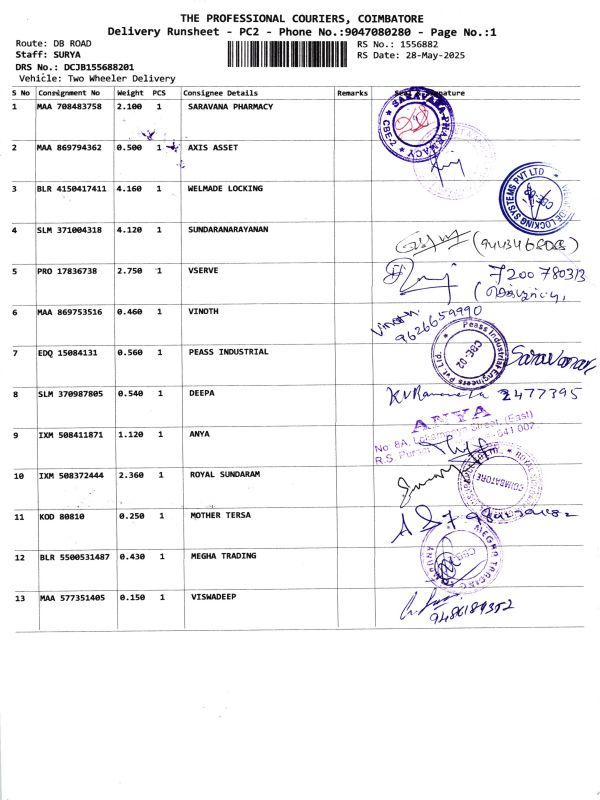 THE PROFESSIONAL COURIERS, COIMBATORE
Delivery Runsheet - PC2 - Phone No.:9047080280 - Page No.:1
Route: DB ROAD RS No.: 1556882
Staff: SURYA RS Date: 28-May-2025
DRS No.: DCJB155688201
Vehicle: Two Wheeler Delivery
S No Consignment No Weight PCS Consignee Details Remarks Signature
1 MAA 708483758 2.100 1 SARAVANA PHARMACY
SARAVANA PHARMACY CBE-2
2 MAA 869794362 0.500 1 AXIS ASSET
3 BLR 4150417411 4.160 1 WELMADE LOCKING
LOCKING SYSTEMS PVT LTD
4 SLM 371004318 4.120 1 SUNDARANARAYANAN
5 PRO 17836738 2.750 1 VSERVE
7200780313
6 MAA 869753516 0.460 1 VINOTH
Vinoth.
9626659990
7 EDQ 15084131 0.560 1 PEASS INDUSTRIAL
Peass Industrial Engineers Pvt. Ltd. CBE-02
Saravanan
8 SLM 370987805 0.540 1 DEEPA
2477395
9 IXM 508411871 1.120 1 ANYA
ANYA
No. 8A, Street, (East)
R.S. Puram 641 002
10 IXM 508372444 2.360 1 ROYAL SUNDARAM
COIMBATORE
11 KOD 80810 0.250 1 MOTHER TERSA
12 BLR 5500531487 0.430 1 MEGHA TRADING
MEGHA TRADING
13 MAA 577351405 0.150 1 VISWADEEP
9486189352